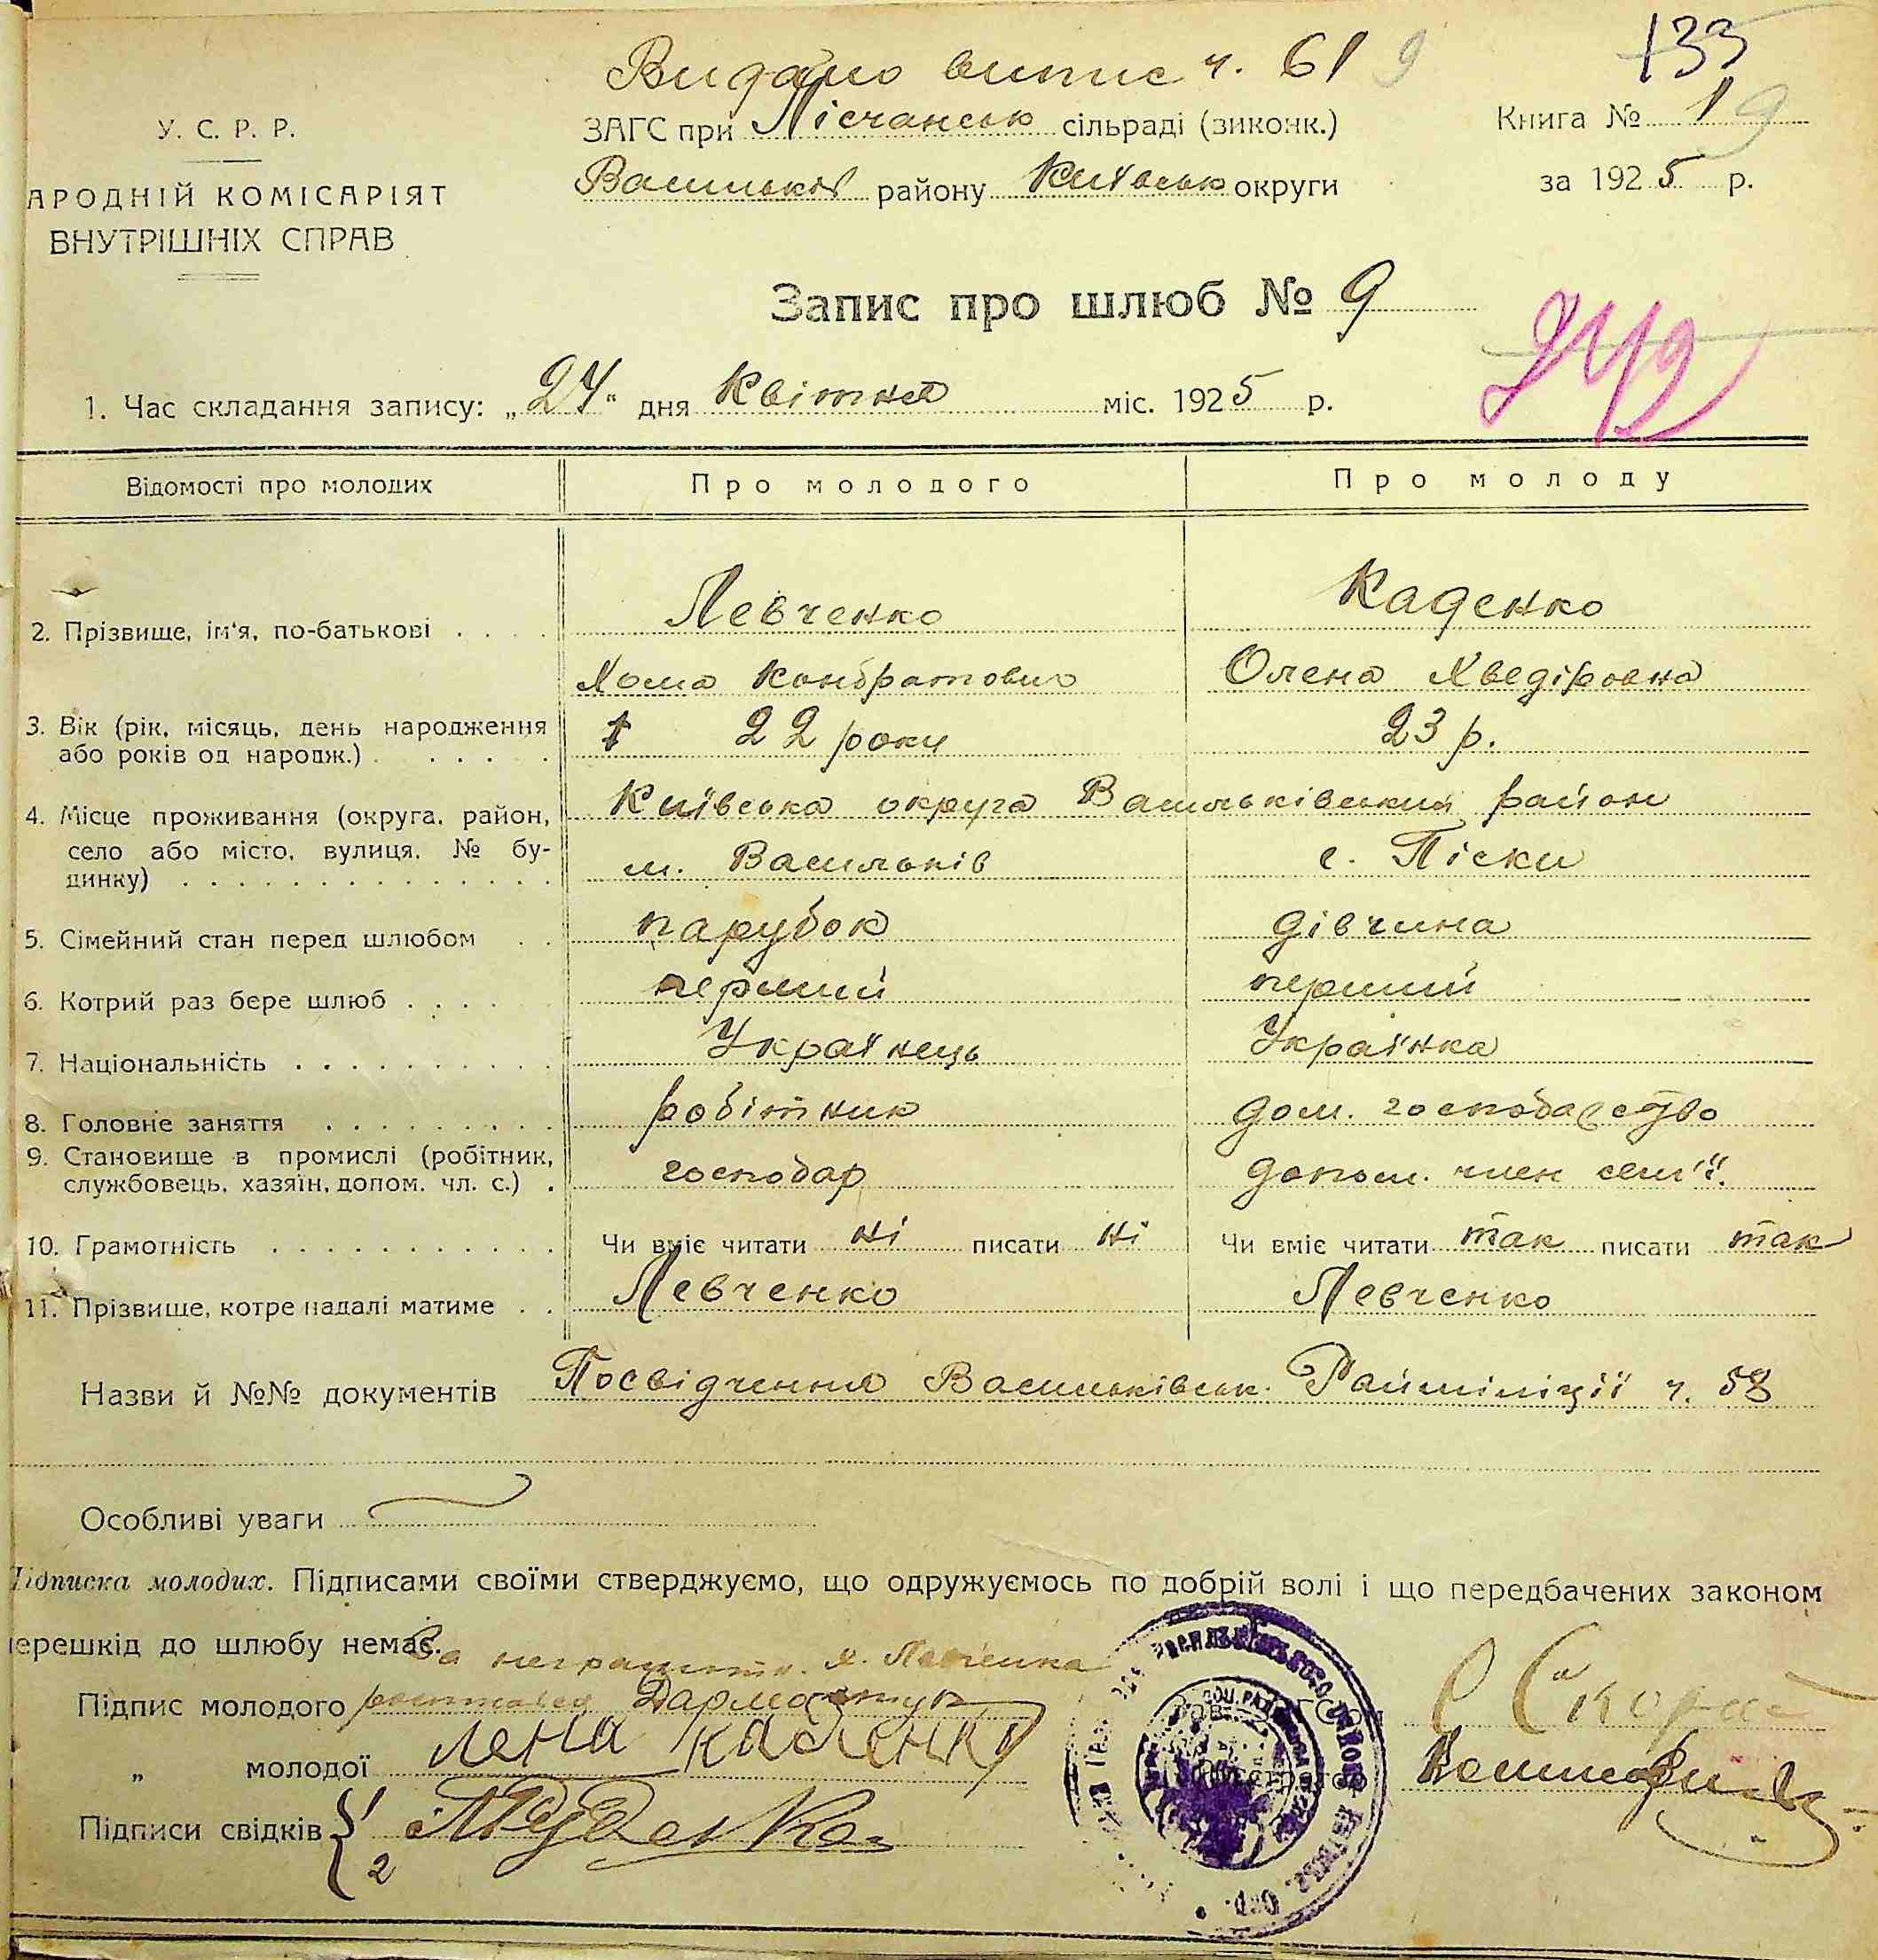 Видано випис ч. 61 9
133
У. С. Р. Р.
ЗАГС при Пісчанськ сільраді (виконк.)
Книга № 1 9
АРОДНІЙ КОМІСАРІЯТ
ВНУТРІШНІХ СПРАВ
Васильків району Київськ округи
за 1925 р.
Запис про шлюб № 9
1. Час складання запису: „24“ дня Квітня міс. 1925 р.
Відомості про молодих
Про молодого
Про молоду
2. Прізвище, ім'я, по-батькові . . . .
Левченко
Каденко
Хома Кондратович
Олена Хведіровна
3. Вік (рік, місяць, день народження
або років од народж.) . . . . .
22 роки
23 р.
4. Місце проживання (округа, район,
село або місто, вулиця, № бу-
динку) . . . . . . . . . . . . . .
Київська округа Васильківський район
м. Васильків
с. Піски
5. Сімейний стан перед шлюбом . .
парубок
дівчина
6. Котрий раз бере шлюб . . . .
перший
перший
7. Національність . . . . . . . . . .
Українець
Українка
8. Головне заняття . . . . . . . . .
робітник
дом. господарство
9. Становище в промислі (робітник,
службовець, хазяїн, допом. чл. с.) .
господар
допом. член сем'ї.
10. Грамотність . . . . . . . . . . .
Чи вміє читати ні писати ні
Чи вміє читати так писати так
11. Прізвище, котре надалі матиме . .
Левченко
Левченко
Назви й №№ документів Посвідчення Васильківськ. Райміліції ч. 58
Особливі уваги
Підписка молодих. Підписами своїми стверджуємо, що одружуємось по добрій волі і що передбачених законом
перешкід до шлюбу немає.
За неграмотн. Х. Левченка
Підпис молодого
„ молодої лена каденко
Підписи свідків 1
2